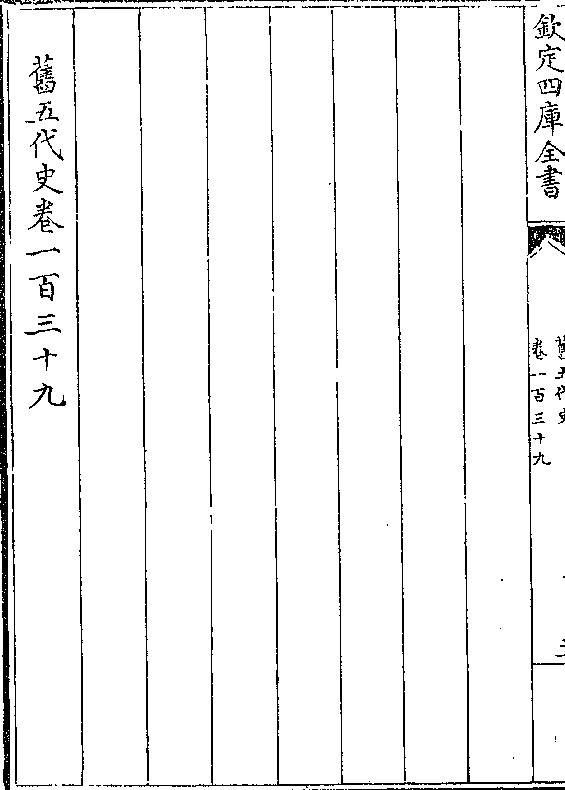 欽定四庫全書
舊五代史
卷一百三十九
舊五代史卷一百三十九